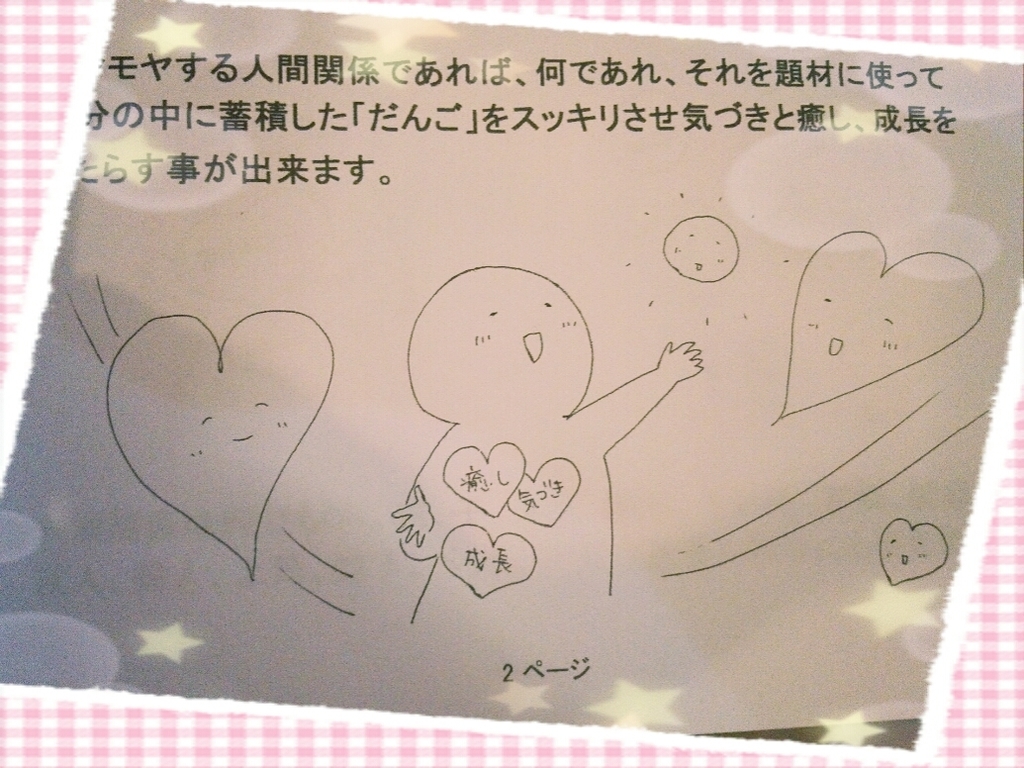 モヤする人間関係であれば、何であれ、それを題材に使って
分の中に蓄積した「だんご」をスッキリさせ気づきと癒し、成長を
たらす事が出来ます。
癒し
気づき
成長
2 ページ